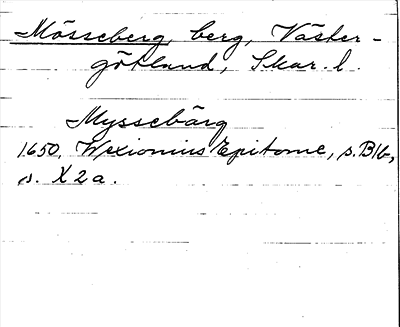 Mösseberg, berg, Väster-
götland, Skar. l.
Myssebärg
1650, Wexionius Epitome, s. B1b,
s. X2a.